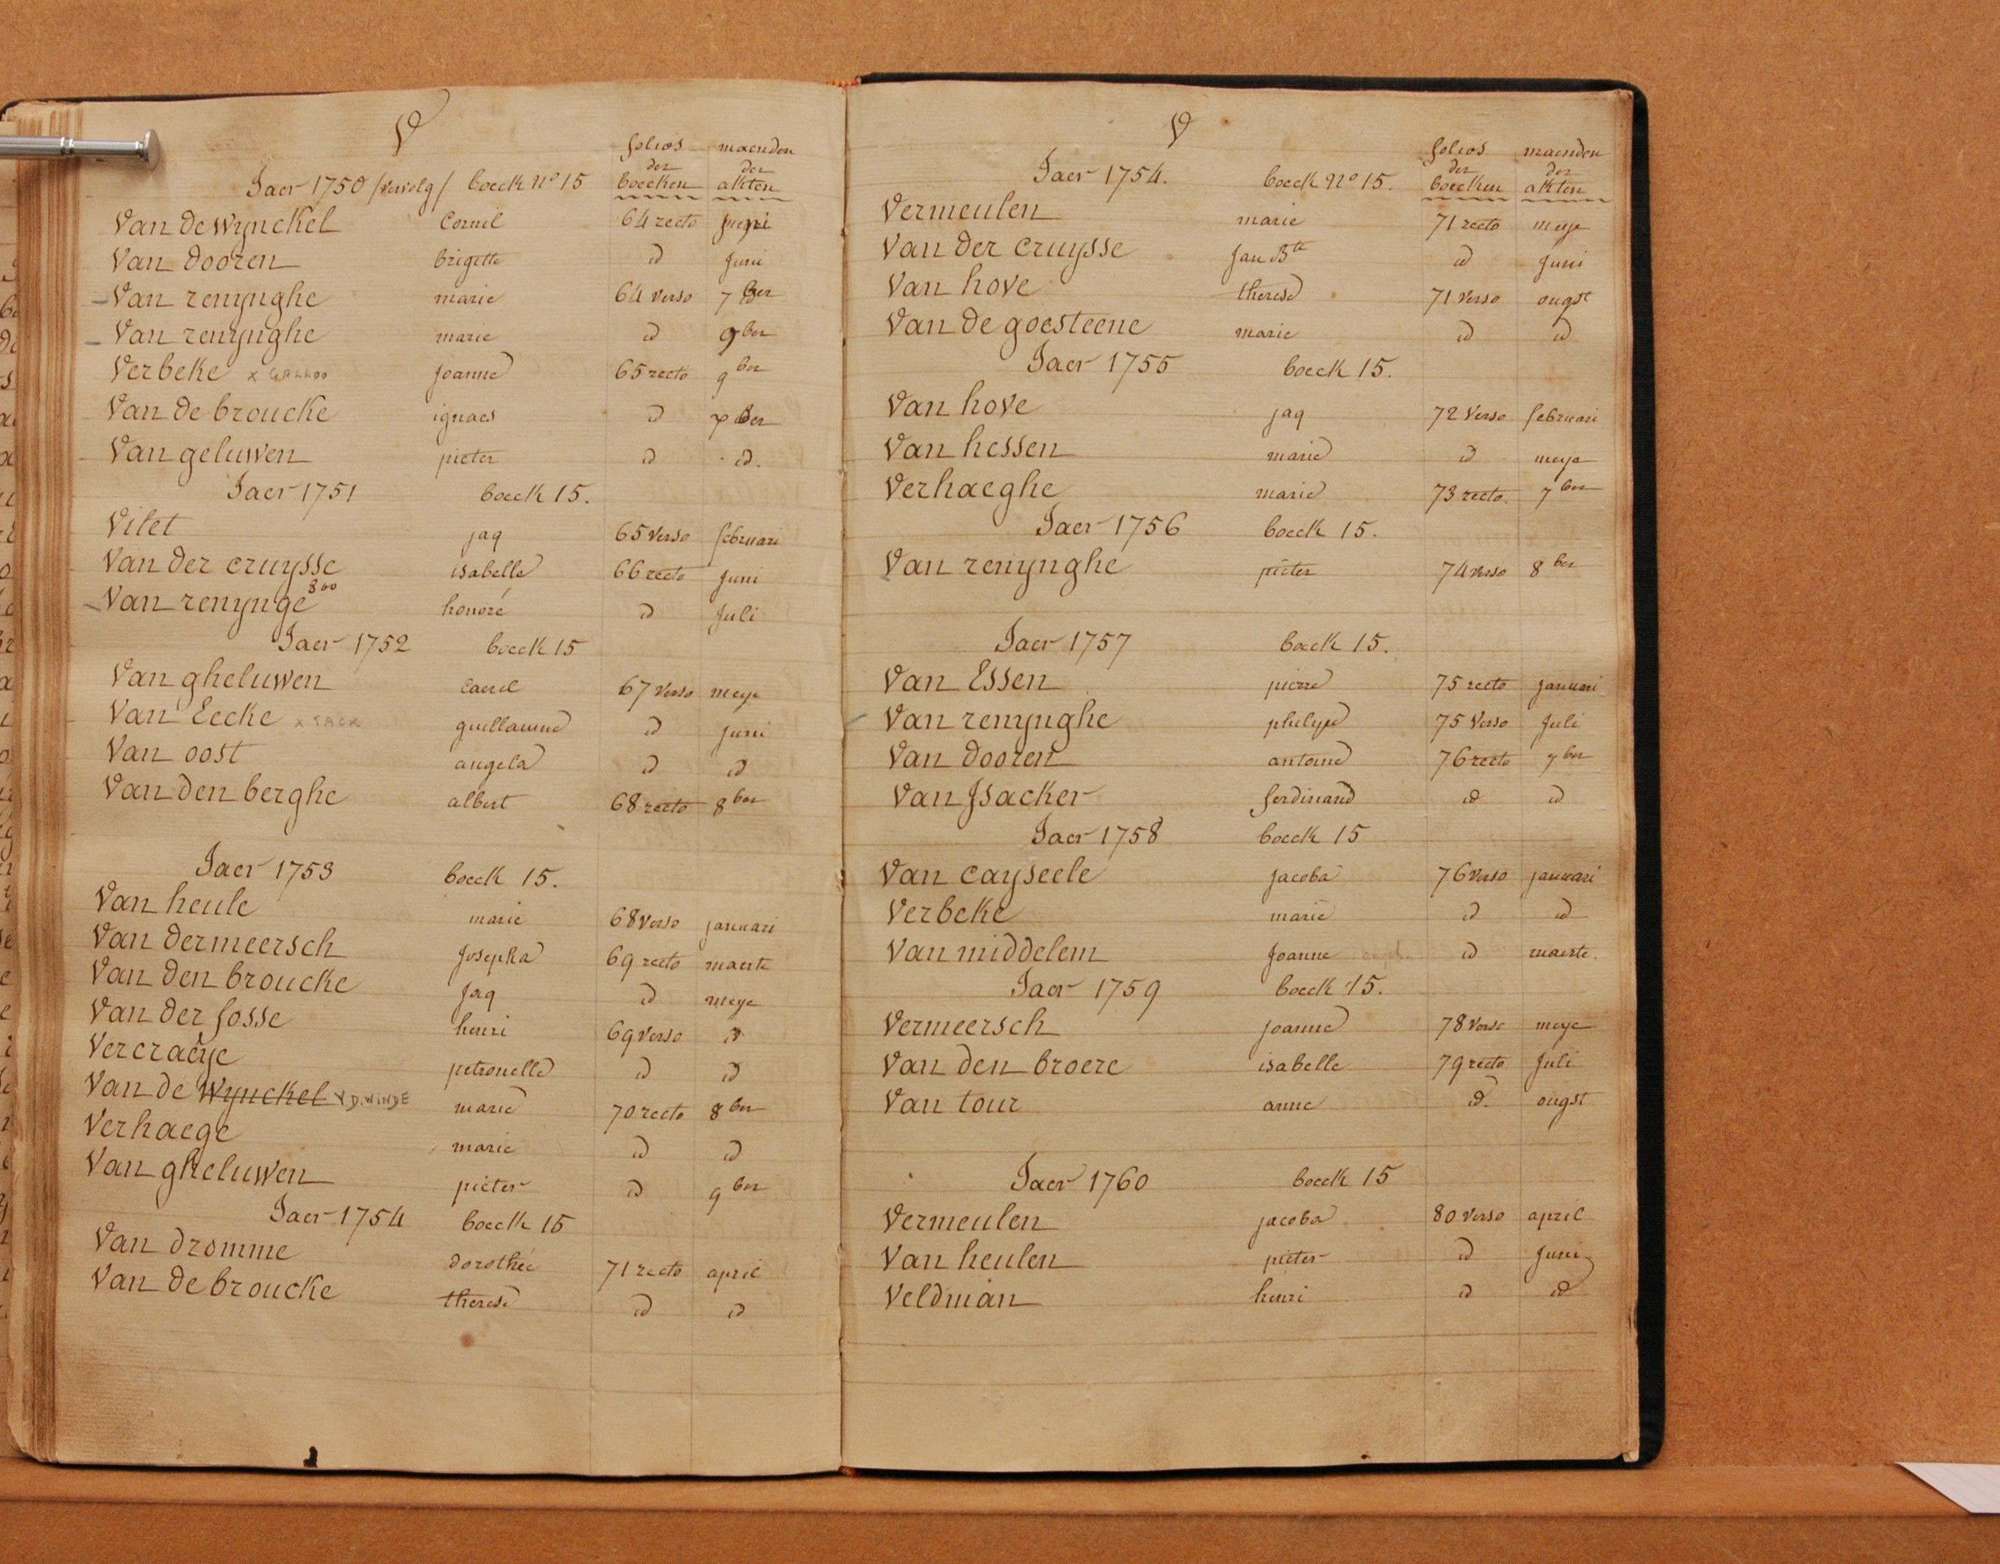 V
folios maenden
der der
Jaer 1750 /vervolg/ boeck No 15 boecken akten
Van de Wynckel Cornil 64 recto
Van dooren brigitte id Juni
Van renynghe marie 64 verso 7 ber
Van renynghe marie id 9 ber
Verbeke x GALLOO joanne 65 recto 9 ber
Van de broucke ignaes id ber
Van geluwen pieter id id.
Jaer 1751 boeck 15.
Vilet jaq 65 verso februari
Van der cruysse isabelle 66 recto Juni
Van renynge honoré id Juli
Jaer 1752 boeck 15
Van gheluwen Caerel 67 verso meye
Van Eecke guillaume id Juni
Van oost angela id id
Van den berghe albert 68 recto 8 ber
Jaer 1753 boeck 15.
Van heule marie 68 verso januari
Van dermeersch Josepha 69 recto maerte
Van den broucke Jaq id meye
Van der fosse henri 69 verso id
Vercraeye petronelle id id
Van de Wynckel x D.WINDE marie 70 recto 8 ber
Verhaege marie id id
Van gheluwen pieter id 9 ber
Jaer 1754 boeck 15
Van dromme dorothée 71 recto april
Van de broucke therese id id
V
folios maenden
der der
Jaer 1754. boeck No 15. boecken akten
Vermeulen marie 71 recto meye
Van der cruysse Jan Bte id Juni
Van hove therese 71 verso ougst
Van de goesteene marie id id
Jaer 1755 boeck 15.
Van hove jaq 72 verso februari
Van hessen marie id meye
Verhaeghe marie 73 recto. 7 ber
Jaer 1756 boeck 15.
Van renynghe pieter 74 verso 8 ber
Jaer 1757 boeck 15.
Van Essen pierre 75 recto januari
Van renynghe philype 75 verso Juli
Van dooren antoine 76 recto 7 ber
Van Jsacker ferdinand id id
Jaer 1758 boeck 15
Van cayseele jacoba 76 verso januari
Verbeke marie id id
Van middelem Joanne id maerte.
Jaer 1759 boeck 15.
Vermeersch joanne 78 verso meye
Van den broere isabelle 79 recto Juli
Van tour anne id. ougst
Jaer 1760 boeck 15
Vermeulen jacoba 80 verso april
Van heulen pieter id Juni
Veldman henri id id